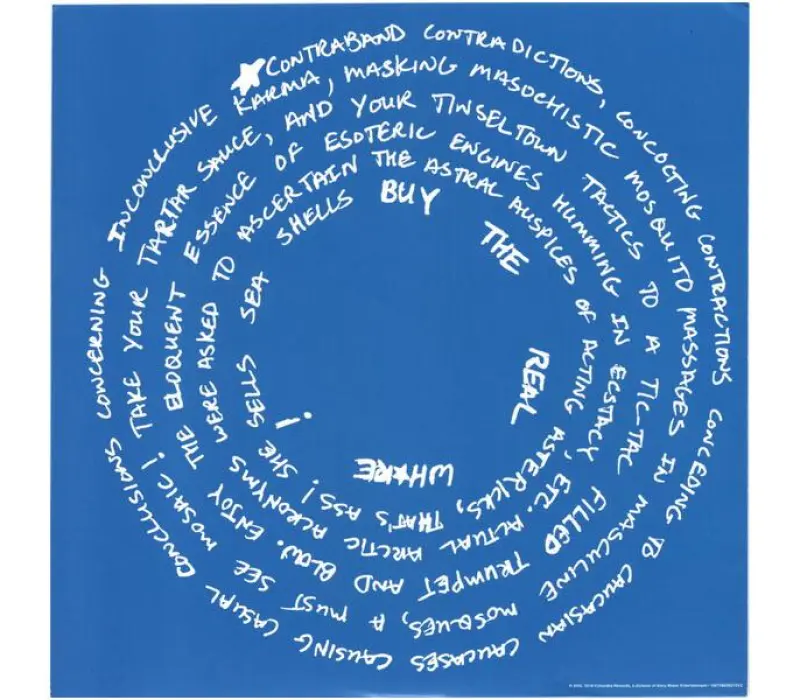 ★CONTRABAND CONTRADICTIONS, CONCOCTING CONTRACTIONS CONCEDING TO CAUCASIAN CAUCASES CAUSING CASUAL CONCLUSIONS CONCERNING INCONCLUSIVE
KARMA, MASKING MASOCHISTIC MOSQUITO MASSAGES IN MASCULINE MOSQUES, A MUST SEE MOSAIC! TAKE YOUR TARTAR SAUCE,
AND YOUR TINSELTOWN TACTICS TO A TIC-TAC FILLED TRUMPET AND BLOW. ENJOY THE ELOQUENT ESSENCE
OF ESOTERIC ENGINES HUMMING IN ECSTACY, ETC. ACTUAL ARCTIC ACRONYMS WERE ASKED TO ASCERTAIN
THE ASTRAL AUSPICES OF ACTING ASTERICKS, THAT'S ASS! SHE SELLS SEA SHELLS
BUY THE REAL WH★RE !
Columbia Records, a division of Sony Music Entertainment